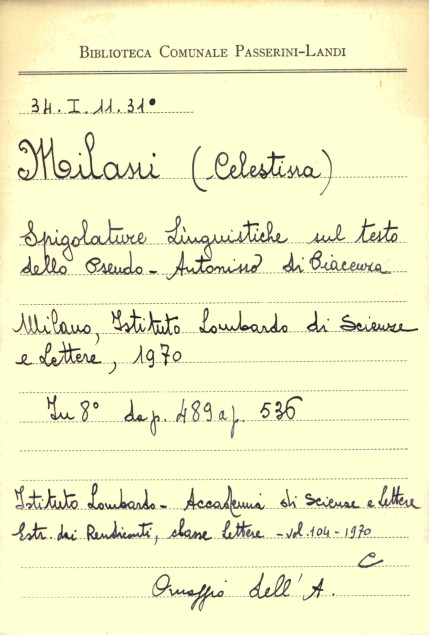 BIBLIOTECA COMUNALE PASSERINI-LANDI
34. I. 11. 31°
Milani (Celestina)
Spigolature Linguistiche sul testo
dello Pseudo-Antonino di Piacenza
Milano, Istituto Lombardo di Scienze
e Lettere, 1970
In 8° da p. 489 a p. 536
Istituto Lombardo - Accademia di Scienze e Lettere
Estr. dai Rendiconti, classe Lettere - vol. 104 - 1970
C
Omaggio dell'A.